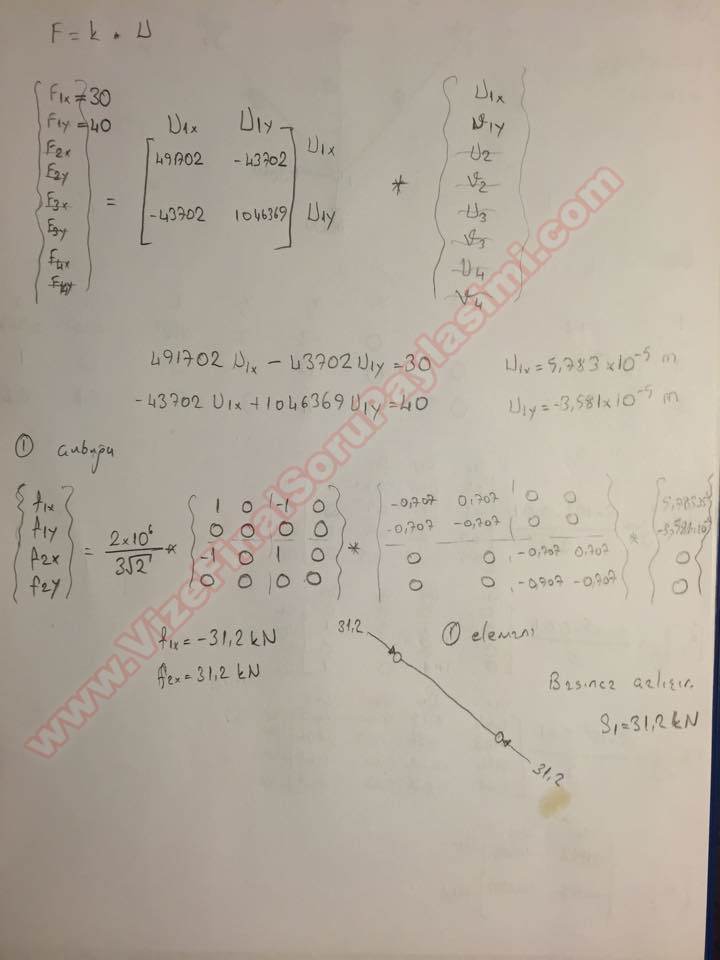 F = k * U
F1x = 30
F1y = 40
F2x
F2y
F3x
F3y
F4x
F4y
=
U1x U1y
491702 -43702 U1x
-43702 1046369 U1y
*
U1x
V1y
U2
V2
U3
V3
U4
V4
491702 U1x - 43702 U1y = 30 U1x = 5,783 x 10^-5 m
-43702 U1x + 1046369 U1y = 40 U1y = -3,581 x 10^-5 m
① çubuğu
f1x
f1y
f2x
f2y
= 2x10^6 / 3√2 *
1 0 -1 0
0 0 0 0
-1 0 1 0
0 0 0 0
*
-0,707 0,707 0 0
-0,707 -0,707 0 0
0 0 -0,707 0,707
0 0 -0,707 -0,707
*
0
0
f1x = -31,2 kN
f2x = 31,2 kN
31,2
① elemanı
31,2
Basınca
S1 = 31,2 kN
www.VizeFinalSoruPaylasimi.com